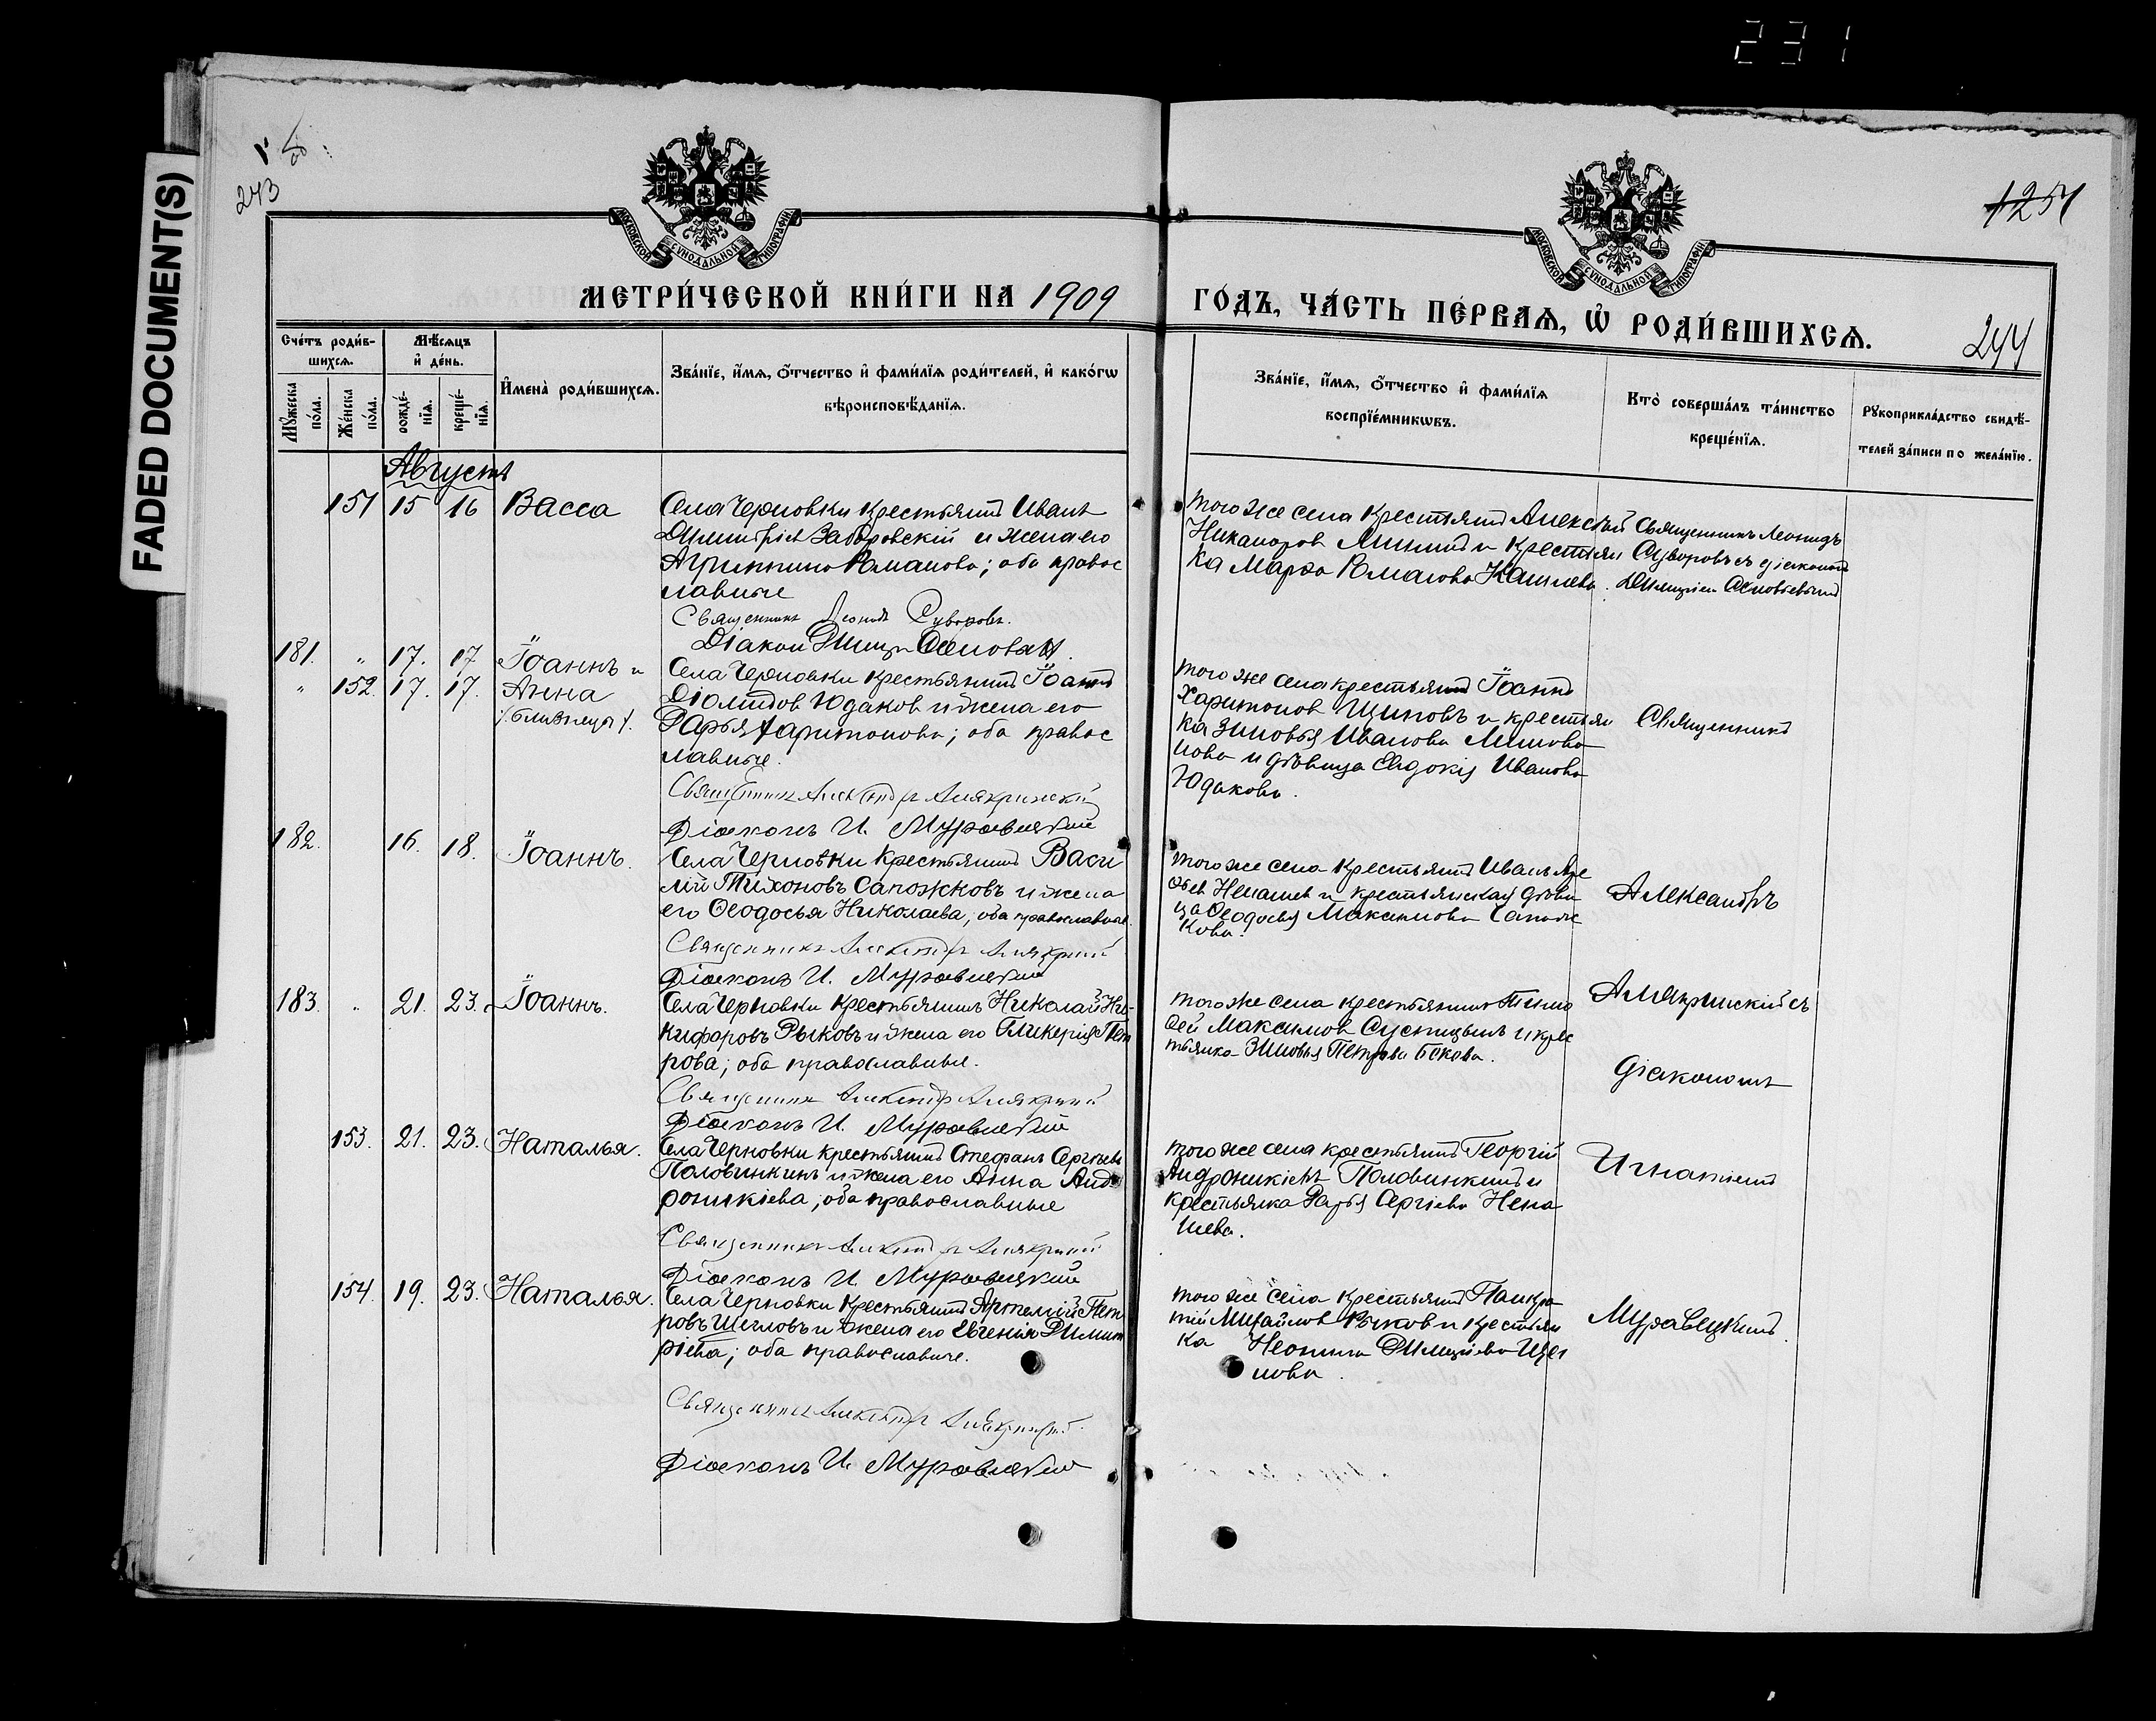 231
FADED DOCUMENT(S)
243
1254
244
МОСКОВСКОЙ СУНОДАЛЬНОЙ ТИПОГРАФІИ
МОСКОВСКОЙ СУНОДАЛЬНОЙ ТИПОГРАФІИ
МЕТРИ́ЧЕСКОЙ КНИ́ГИ НА 1909
ГО́ДЪ, ЧА́СТЬ ПЕ́РВАѦ, Ѿ РОДИ́ВШИХСѦ.
Сче́тъ роди́в-
шихсѧ.
Мꙋ́жеска по́ла.
Же́нска по́ла.
Мѣ́сяцъ
и҆ де́нь.
рожде́-
нїѧ.
креще́-
нїѧ.
И҆мена̀ роди́вшихсѧ.
Зва́нїе, и҆́мѧ, ѻ҆́тчество и҆ фами́лїѧ роди́телей, и҆ како́гѡ
вѣроисповѣ́данїѧ.
Зва́нїе, и҆́мѧ, ѻ҆́тчество и҆ фами́лїѧ
воспрїе́мникѡвъ.
Кто̀ соверша́лъ та́инство
креще́нїѧ.
Рꙋкоприкла́дство свидѣ́-
телей за́писи по жела́нїю.
Августъ
151 15 16 Васса
Села Черновки крестьянинъ Иванъ
Димитріев Заборовскій и жена его
Агриппина Романова; оба правос
лавные
Священникъ Леонид Суворовъ.
Діакон
того же села крестьянинъ Алексѣй
Никаноров и крестьян
ка Марѳа Романова
Священникъ Леонидъ
Суворовъ съ діакономъ
181. " 17. 17 Іоаннъ и
" 152. 17. 17. Анна
(близнецы).
Села Черновки крестьянинъ Іоаннъ
Діомидов Юдаков и жена его
Дарья Харитонова; оба правос
лавные.
Священникъ Александръ Алякринскій
Діаконъ И. Муравецкій
того же села крестьянинъ Іоаннъ
Харитонов и крестьян
ка Зиновья Иванова
нова и дѣвица Евдокія Иванова
Юдакова.
Священникъ
182. 16. 18. Іоаннъ.
Села Черновки крестьянинъ Васи
лій Тихоновъ Сапожковъ и жена
его Ѳеодосья Николаева, оба православные.
Священникъ Александръ Алякринскій
Діаконъ И. Муравецкій
того же села крестьянинъ Иванъ
Ненашев и крестьянская дѣви
ца Ѳеодосья Максимова Сапож
кова.
Александръ
183. " 21. 23. Іоаннъ.
Села Черновки крестьянинъ Николай Ни-
кифоровъ Рыковъ и жена его Гликерія Пет
рова; оба православные.
Священникъ Александръ Алякринскій
Діаконъ И. Муравецкій
того же села крестьянинъ Тимо
ѳей Максимов и крес
тьянка Зиновья Петрова
Алякринскій съ
діакономъ
153. 21. 23. Наталья.
Села Черновки крестьянинъ Стефанъ Сергѣевъ
Половинкинъ и жена его Анна Анд
роникіева; оба православные
Священникъ Александръ Алякринскій
Діаконъ И. Муравецкій
того же села крестьянинъ Георгій
Андроникіевъ Половинкинъ и
крестьянка Дарья Сергіева Нена
шева.
Игнатіемъ
154. 19. 23. Наталья.
Села Черновки крестьянинъ Артемій Пет
ровъ Щегловъ и жена его Евгенія Димит
ріева; оба православные.
Священникъ Александръ Алякринскій
Діаконъ И. Муравецкій
того же села крестьянинъ Панкра
тій Михайлов Рыков и крестьян
ка Неонила Димитріева Щег
лова.
Муравецкимъ.